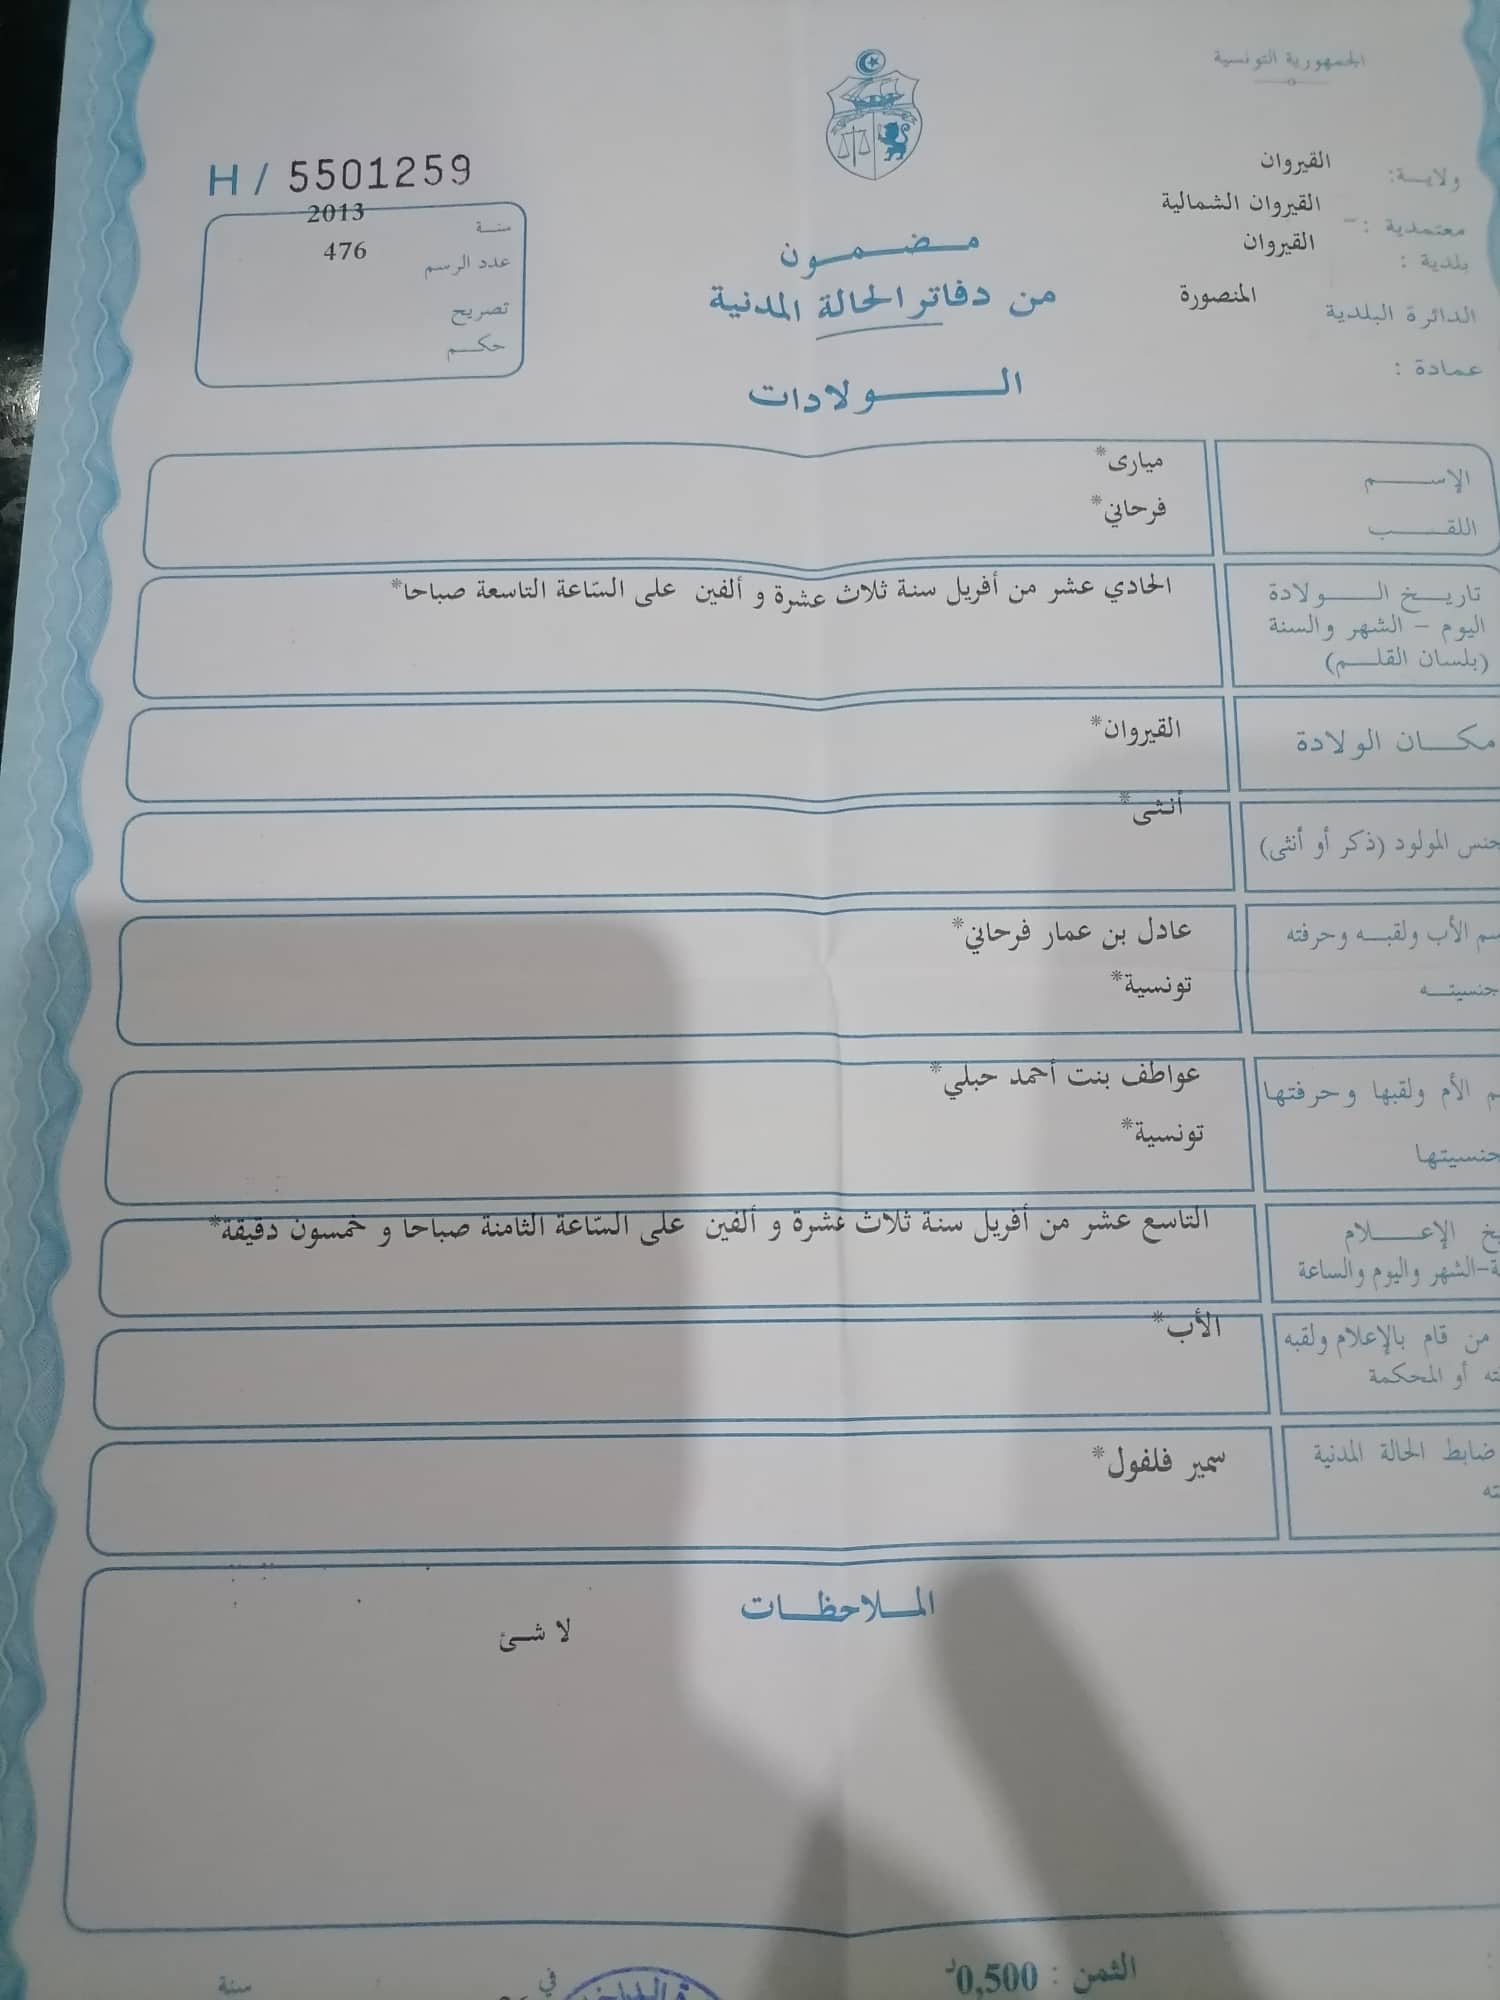 الجمهورية التونسية
ولايــة: القيروان
معتمدية : القيروان الشمالية
بلدية : القيروان
الدائرة البلدية المنصورة
عمادة :
H / 5501259
سنــة 2013
عدد الرسم 476
تصريح
حكــم
مـضـمـون
من دفاتر الحالة المدنية
الـــولادات
الإســـم ميارى*
اللقــب فرحاني*
تاريــخ الـــولادة الحادي عشر من أفريل سنة ثلاث عشرة و ألفين على السّاعة التاسعة صباحا*
اليوم – الشهر والسنة
(بلسان القلــم)
مكــان الولادة القيروان*
جنس المولود (ذكر أو أنثى) أنثى*
الأب ولقبــه وحرفته عادل بن عمار فرحاني*
جنسيتــه تونسية*
الأم ولقبها وحرفتها عواطف بنت أحمد حبلي*
جنسيتها تونسية*
الإعـــلام التاسع عشر من أفريل سنة ثلاث عشرة و ألفين على السّاعة الثامنة صباحا و خمسون دقيقة*
-الشهر واليوم والساعة
من قام بالإعلام ولقبه الأب*
أو المحكمة
ضابط الحالة المدنية سمير فلفول*
المــلاحظــات
لا شــئ
الثمن : 0,500د
في
سنة